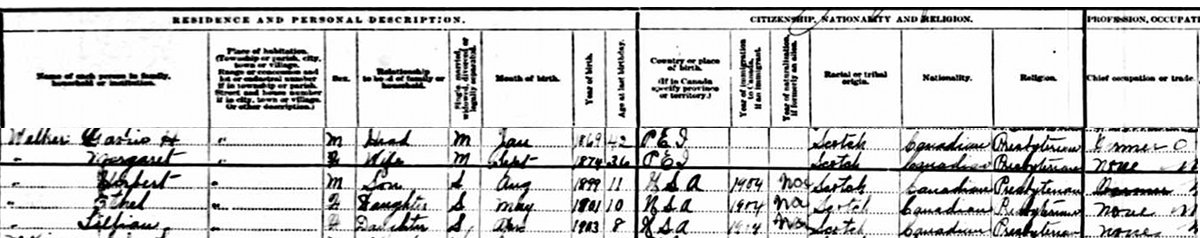 RESIDENCE AND PERSONAL DESCRIPTION. CITIZENSHIP, NATIONALITY AND RELIGION. PROFESSION, OCCUPAT
Name of each person in family, household or institution.
Place of habitation. (Township or parish, city, town or village. Range or concession and lot or cadastral number if in township or parish. Street and house number if in city, town or village. Or other description.)
Sex.
Relationship to head of family or household.
Single, married, widowed, divorced or legally separated.
Month of birth.
Year of birth.
Age at last birthday.
Country or place of birth. (If in Canada specify province or territory.)
Year of immigration to Canada, if an immigrant.
Year of naturalization, if formerly an alien.
Racial or tribal origin.
Nationality.
Religion.
Chief occupation or trade
Walker H " M Head M Jan 1869 42 P E I Scotch Canadian Presbyterian
" Margaret " F Wife M Sept 1874 36 P E I Scotch Canadian Presbyterian none
" Herbert " M Son S Aug 1899 11 U S A 1904 na Scotch Canadian Presbyterian
" Ethel " F Daughter S May 1901 10 U S A 1904 na Scotch Canadian Presbyterian none
" Lillian " F Daughter S 1903 8 U S A 1904 na Scotch Canadian Presbyterian none